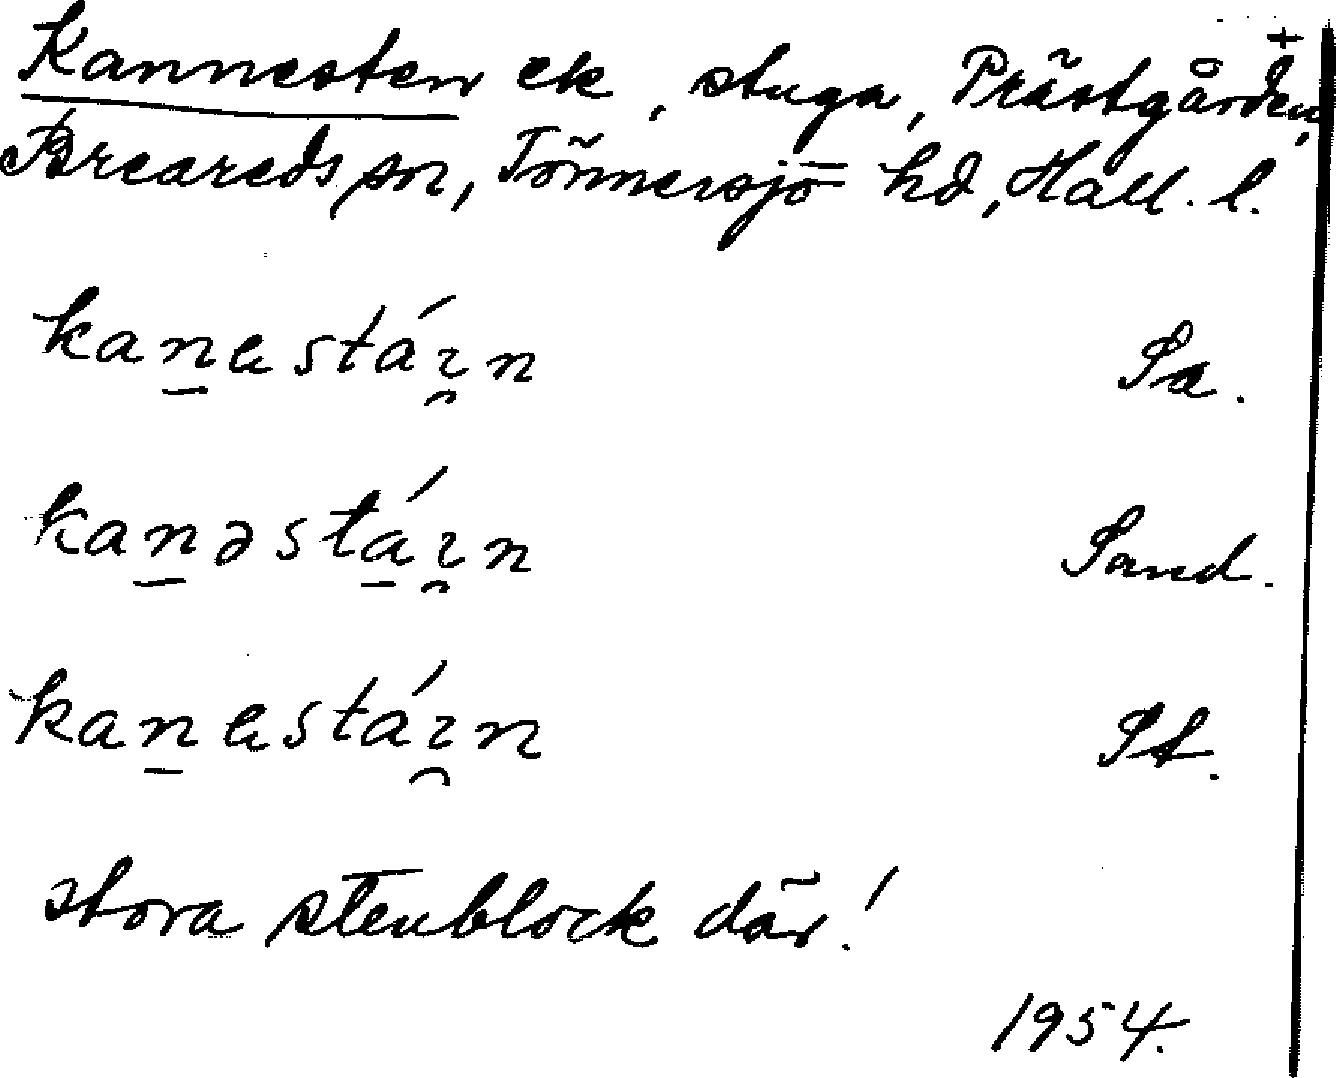 Kannesten ek, stuga, Prästgården, +
Breareds sn, Tönnersjö hd, Hall. l.
kan̲estáɪ̯n Sa.
kan̲əstá̲ɪ̯n Sand.
kan̲estáɪ̯n St.
stora stenblock där!
1954.